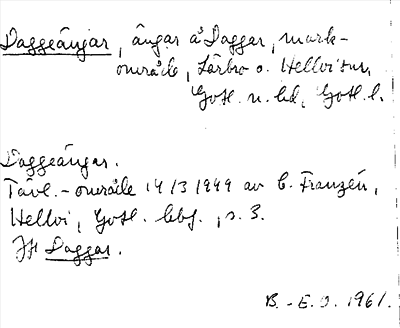 Daggeängar, ängar å Daggar, mark-
område, Lärbro o. Hellvi snr,
Gotl. n. hd, Gotl. l.
Daggeängar.
Tävl.-område 14/3 1949 av C. Franzén,
Hellvi, Gotl. , s. 3.
Jfr Daggar.
B.-E. J. 1961.